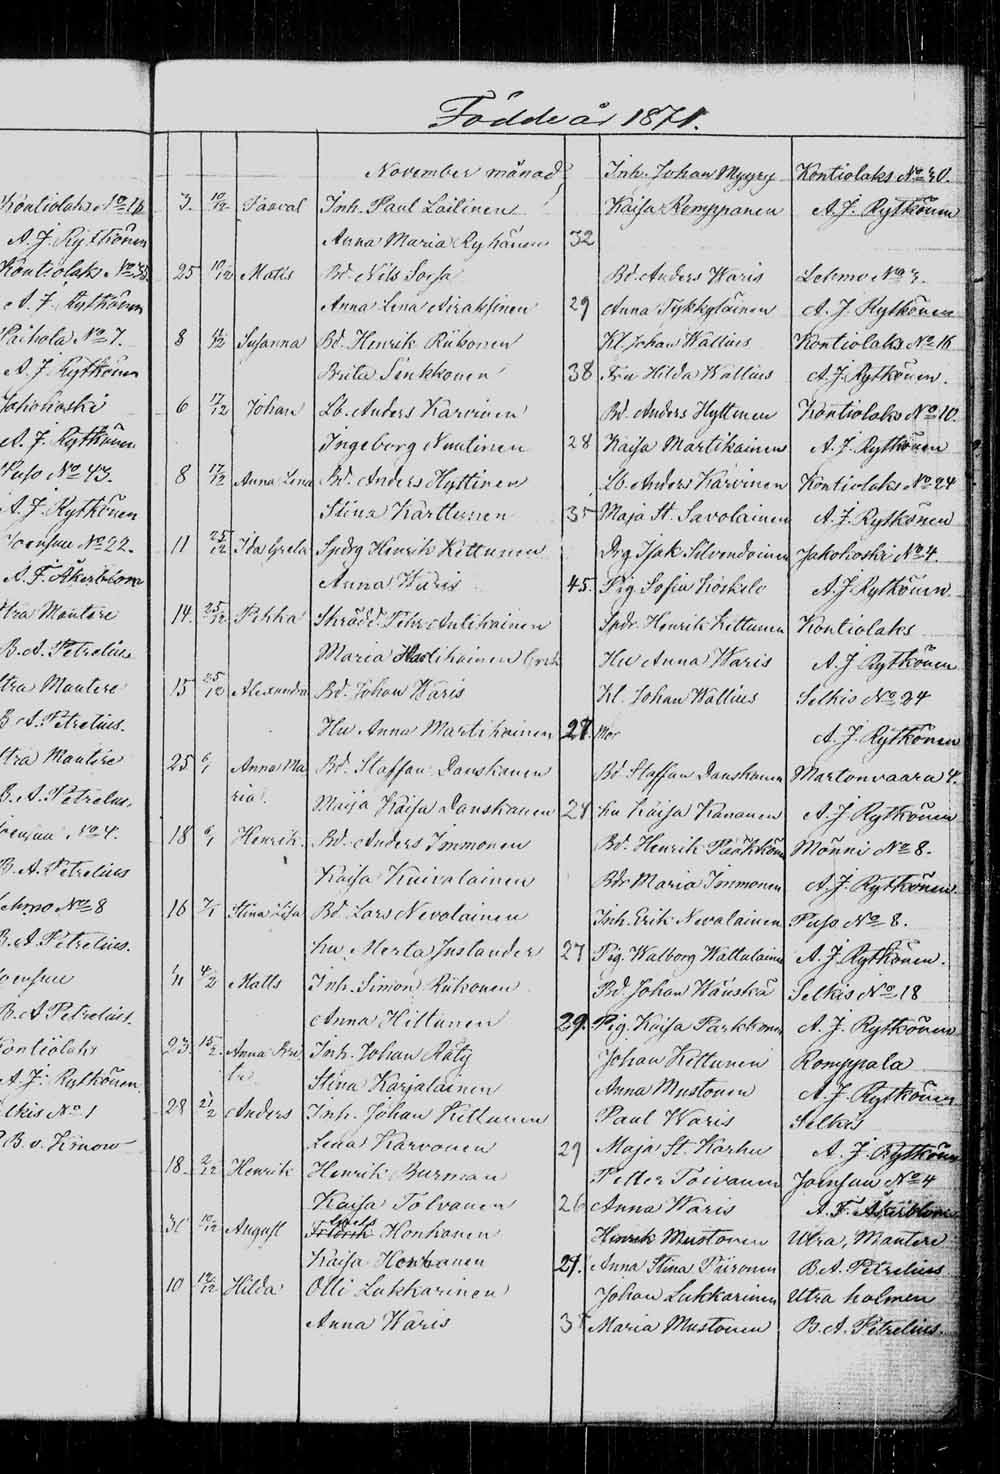 Födde år 1871.
November månad
Inh. Johan Myyry Kontiolaks No 30.
Kontiolaks No 16
3. 10/12 Paaval Inh. Paul Lailinen Kaisa Romppanen A. J. Rytkönen
A. J. Rytkönen Anna Maria Ryhänen 32
Kontiolaks No 35
25 10/12 Matts Bd. Nils Bd. Anders Waris Lehmo No 3.
A. J. Rytkönen Anna Lena Airaksinen 29 Anna Tykkyläinen A. J. Rytkönen
No 7. 8 Susanna Bd. Henrik Riikonen Kl. Johan Wallius Kontiolaks No 16
A. J. Rytkönen Brita Sinkkonen 38 Fru Hilda Wallius A. J. Rytkönen.
Jakokoski 6 17/12 Johan Lb. Anders Karvinen Bd. Anders Hyttinen Kontiolaks No 10.
A. J. Rytkönen Ingeborg Nuutinen 28 Kaisa Martikainen A. J. Rytkönen
Puso No 43. 8 17/12 Anna Lena Bd. Anders Hyttinen Lb. Anders Karvinen Kontiolaks No 24
A. J. Rytkönen Stina Karttunen 35 Maja St. Savolainen A. J. Rytkönen
Joensuu No 22. 11 25/12 Ida Greta Henrik Kettunen Drg Isak Silvendoinen Jakokoski No 4.
A. F. Åkerblom Anna Waris 45. Pig. Sofia Koskelo A. J. Rytkönen
Utra Mantere 14. 25/12 Pekka Skrädd. Petter Antikainen Henrik Kettunen Kontiolaks
B. A. Petrelius Maria Martikainen Hu Anna Waris A. J. Rytkönen
Utra Mantere 15 25/12 Alexandra Bd. Johan Waris Kl. Johan Wallius Selkis No 24
B. A. Petrelius. Hu Anna Martikainen 27. A. J. Rytkönen
Utra Mantere 25 6/1 Anna Ma Bd. Staffan Danskanen Bd Staffan Danskanen Martonvaara 4.
B. A. Petrelius. ria. Maija Kaisa Danskanen 28 hu Kaisa Kananen A. J. Rytkönen
Joensuu No 4. 18 6/1 Henrik Bd. Anders Immonen Bd. Henrik Pöökkönen Mönni No 8.
B. A. Petrelius Kaisa Kuivalainen Maria Immonen A. J. Rytkönen.
Lehmo No 8 16 7/1 Stina Lisa Bd Lars Nevalainen Inh. Erik Nevalainen Puso No 8.
B. A. Petrelius. hu Merta Inslander 27 Pig. Walborg Wattulainen A. J. Rytkönen.
Joensuu 11 4/2 Matts Inh. Simon Riikonen Bd. Johan Wänskä Selkis No 18
B. A. Petrelius. Anna Hiltunen 29. Pig. Kaisa Parkkonen A. J. Rytkönen
Kontiolaks 23. 15/2. Anna Kri Inh. Johan Räty Johan Kettunen Romppala
A. J. Rytkönen Stina Karjalainen Anna Mustonen A. J. Rytkönen
Selkis No 1 28 21/2 Anders Inh. Johan Kettunen Paul Waris Selkis
B. v. Kinow Lena Karvonen 29 Maja St. Karhu A. J. Rytkönen
18. 2/12 Henrik Henrik Burman Petter Toivanen Joensuu No 4
Kaisa Tolvanen 26 Anna Waris A. F. Åkerblom
30 10/12 August Honkanen Henrik Mustonen Utra, Mantere
Kaisa Honkanen 29. Anna Stina Piironen B. A. Petrelius
10 12/12 Hilda Olli Lukkarinen Johan Lukkarinen Utra holmen
Anna Waris 35 Maria Mustonen B. A. Petrelius.